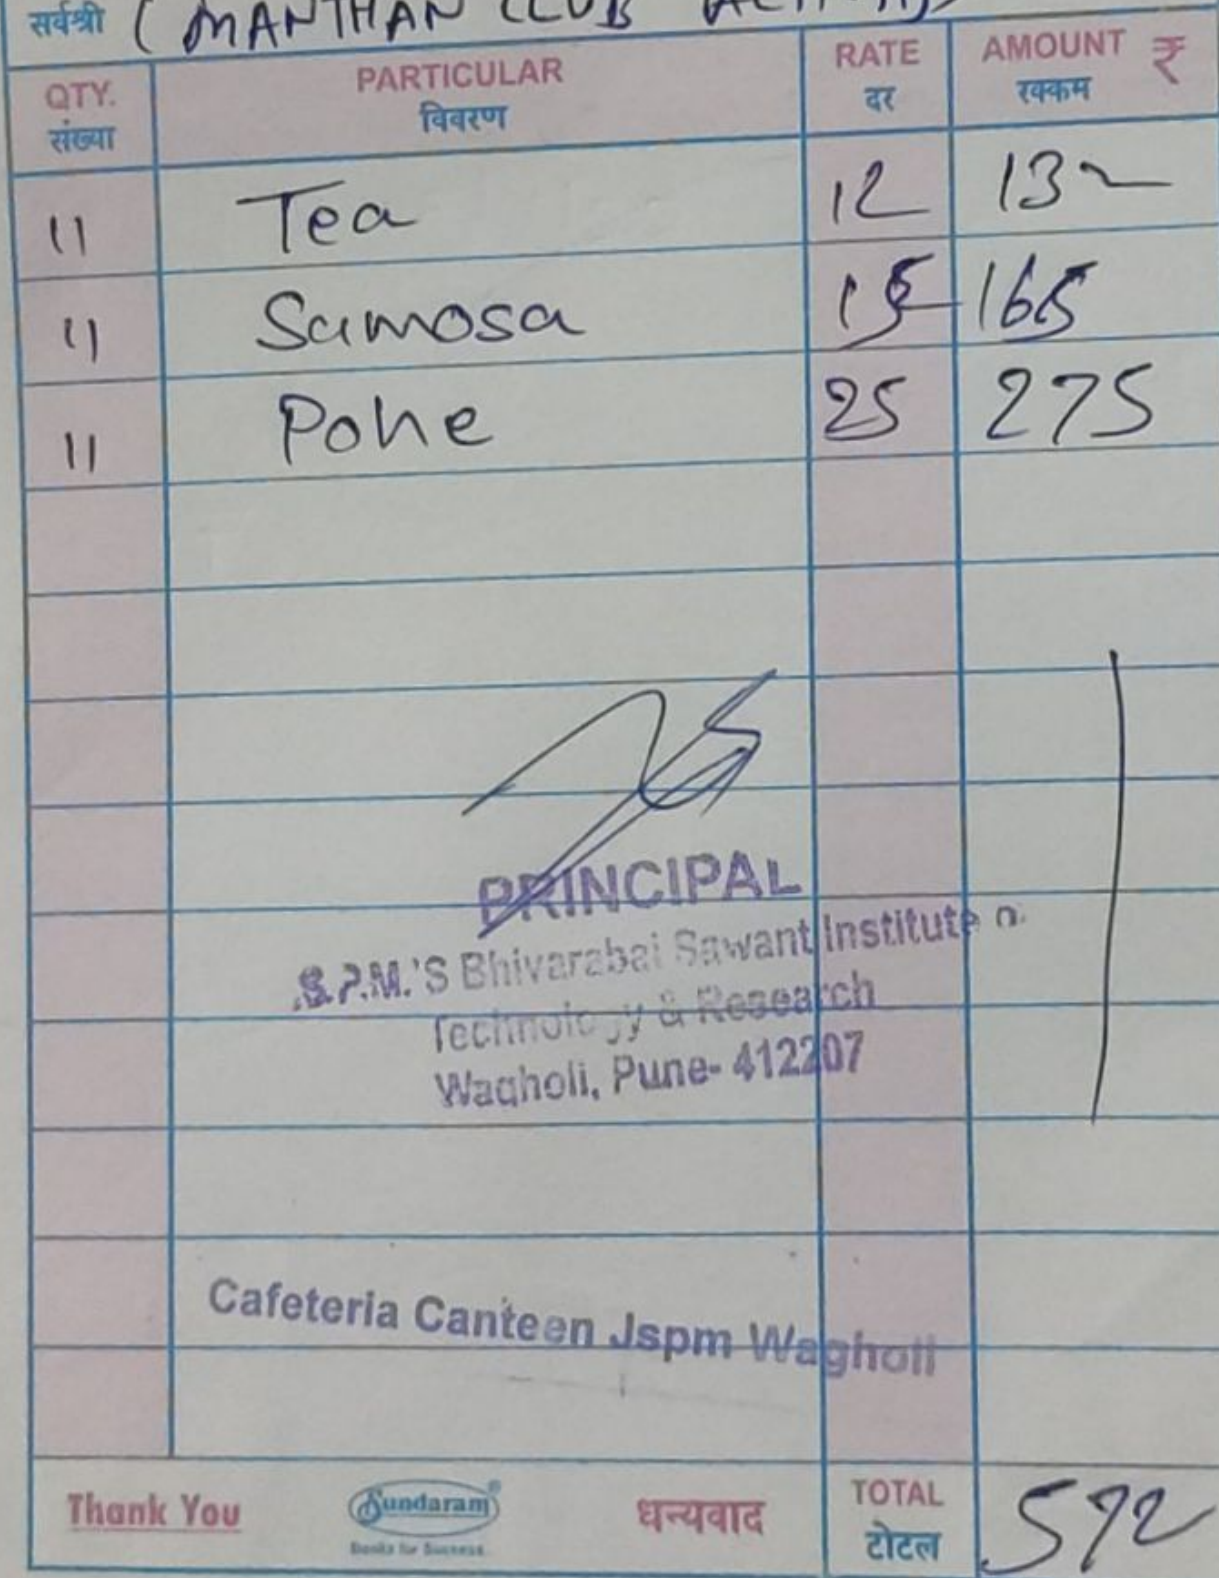 सर्वश्री ( MANTHAN CLUB
QTY. PARTICULAR RATE AMOUNT ₹
संख्या विवरण दर रक्कम
11 Tea 12 132
11 Samosa 15 165
11 Pohe 25 275
PRINCIPAL
.S.P.M.'S Bhivarabai Sawant Institute o
Technology & Research
Wagholi, Pune- 412207
Cafeteria Canteen Jspm Wagholi
Thank You Sundaram® धन्यवाद TOTAL 572
Books for Success टोटल